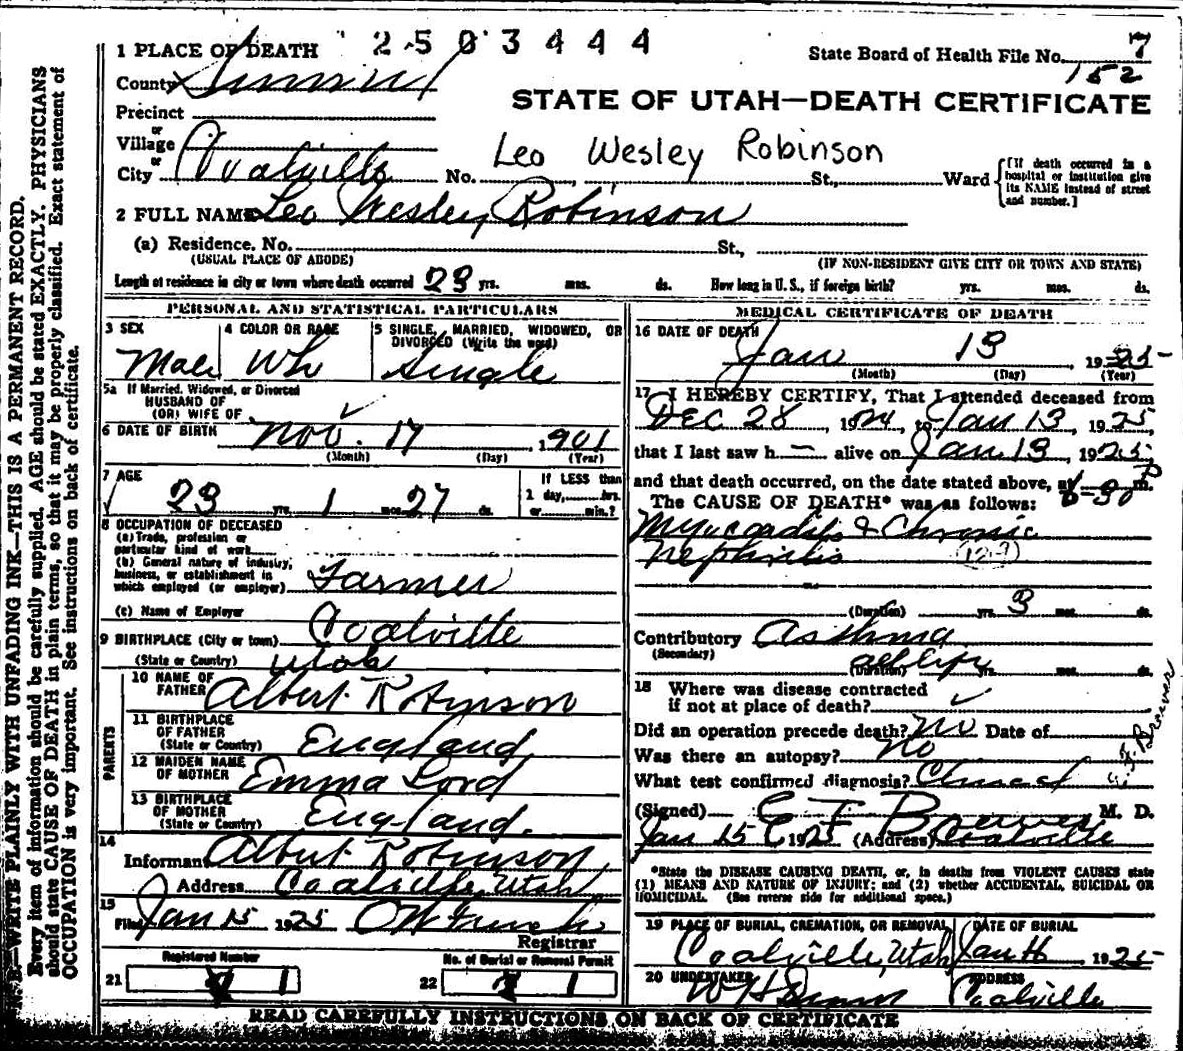 1 PLACE OF DEATH 2503444 State Board of Health File No. 7
152
County Summit
STATE OF UTAH—DEATH CERTIFICATE
Precinct
or
Village
Leo Wesley Robinson
or
City Coalville No. St., Ward {[If death occurred in a hospital or institution give its NAME instead of street and number.]
2 FULL NAME Leo Wesley Robinson
(a) Residence. No. St.,
(USUAL PLACE OF ABODE) (IF NON-RESIDENT GIVE CITY OR TOWN AND STATE)
Length of residence in city or town where death occurred 23 yrs. mos. ds. How long in U. S., if foreign birth? yrs. mos. ds.
PERSONAL AND STATISTICAL PARTICULARS
3 SEX 4 COLOR OR RACE 5 SINGLE, MARRIED, WIDOWED, OR
DIVORCED (Write the word)
Male Wh Single
5a If Married, Widowed, or Divorced
HUSBAND OF
(OR) WIFE OF
6 DATE OF BIRTH Nov. 17, 1901
(Month) (Day) (Year)
7 AGE If LESS than
23 yrs. 1 mos. 27 ds. 1 day, hrs.
or min.?
8 OCCUPATION OF DECEASED
(a) Trade, profession or
particular kind of work
(b) General nature of industry,
business, or establishment in
which employed (or employer) Farmer
(c) Name of Employer
9 BIRTHPLACE (City or town) Coalville
(State or Country) Utah
PARENTS
10 NAME OF
FATHER Albert Robinson
11 BIRTHPLACE
OF FATHER
(State or Country) England
12 MAIDEN NAME
OF MOTHER Emma Lord
13 BIRTHPLACE
OF MOTHER
(State or Country) England.
14
Informant Albert Robinson
Address Coalville, Utah
15
Filed Jan 15 1925 O W French
Registrar
Registered Number No. of Burial or Removal Permit
21 1 22 1
MEDICAL CERTIFICATE OF DEATH
16 DATE OF DEATH
Jan 13 1925
(Month) (Day) (Year)
17 I HEREBY CERTIFY, That I attended deceased from
Dec 28, 1924, to Jan 13, 1925,
that I last saw h — alive on Jan. 13, 1925,
and that death occurred, on the date stated above, at 6-30 P m.
The CAUSE OF DEATH* was as follows:
Myocarditis & Chronic
Nephritis (129)
(Duration) yrs. 3 mos. ds.
Contributory Asthma
(Secondary)
(Duration) mos. ds.
18 Where was disease contracted
if not at place of death?
Did an operation precede death? No Date of
Was there an autopsy? No
What test confirmed diagnosis? Clinical
(Signed) M. D.
Jan 15 1925 (Address) Coalville
*State the DISEASE CAUSING DEATH, or, in deaths from VIOLENT CAUSES state
(1) MEANS AND NATURE OF INJURY; and (2) whether ACCIDENTAL, SUICIDAL OR
HOMICIDAL. (See reverse side for additional space.)
19 PLACE OF BURIAL, CREMATION, OR REMOVAL DATE OF BURIAL
Coalville, Utah Jan 16 1925
20 UNDERTAKER ADDRESS
W H Coalville
READ CAREFULLY INSTRUCTIONS ON BACK OF CERTIFICATE
N. B.—WRITE PLAINLY WITH UNFADING INK—THIS IS A PERMANENT RECORD.
Every item of information should be carefully supplied. AGE should be stated EXACTLY. PHYSICIANS
should state CAUSE OF DEATH in plain terms, so that it may be properly classified. Exact statement of
OCCUPATION is very important. See instructions on back of certificate.